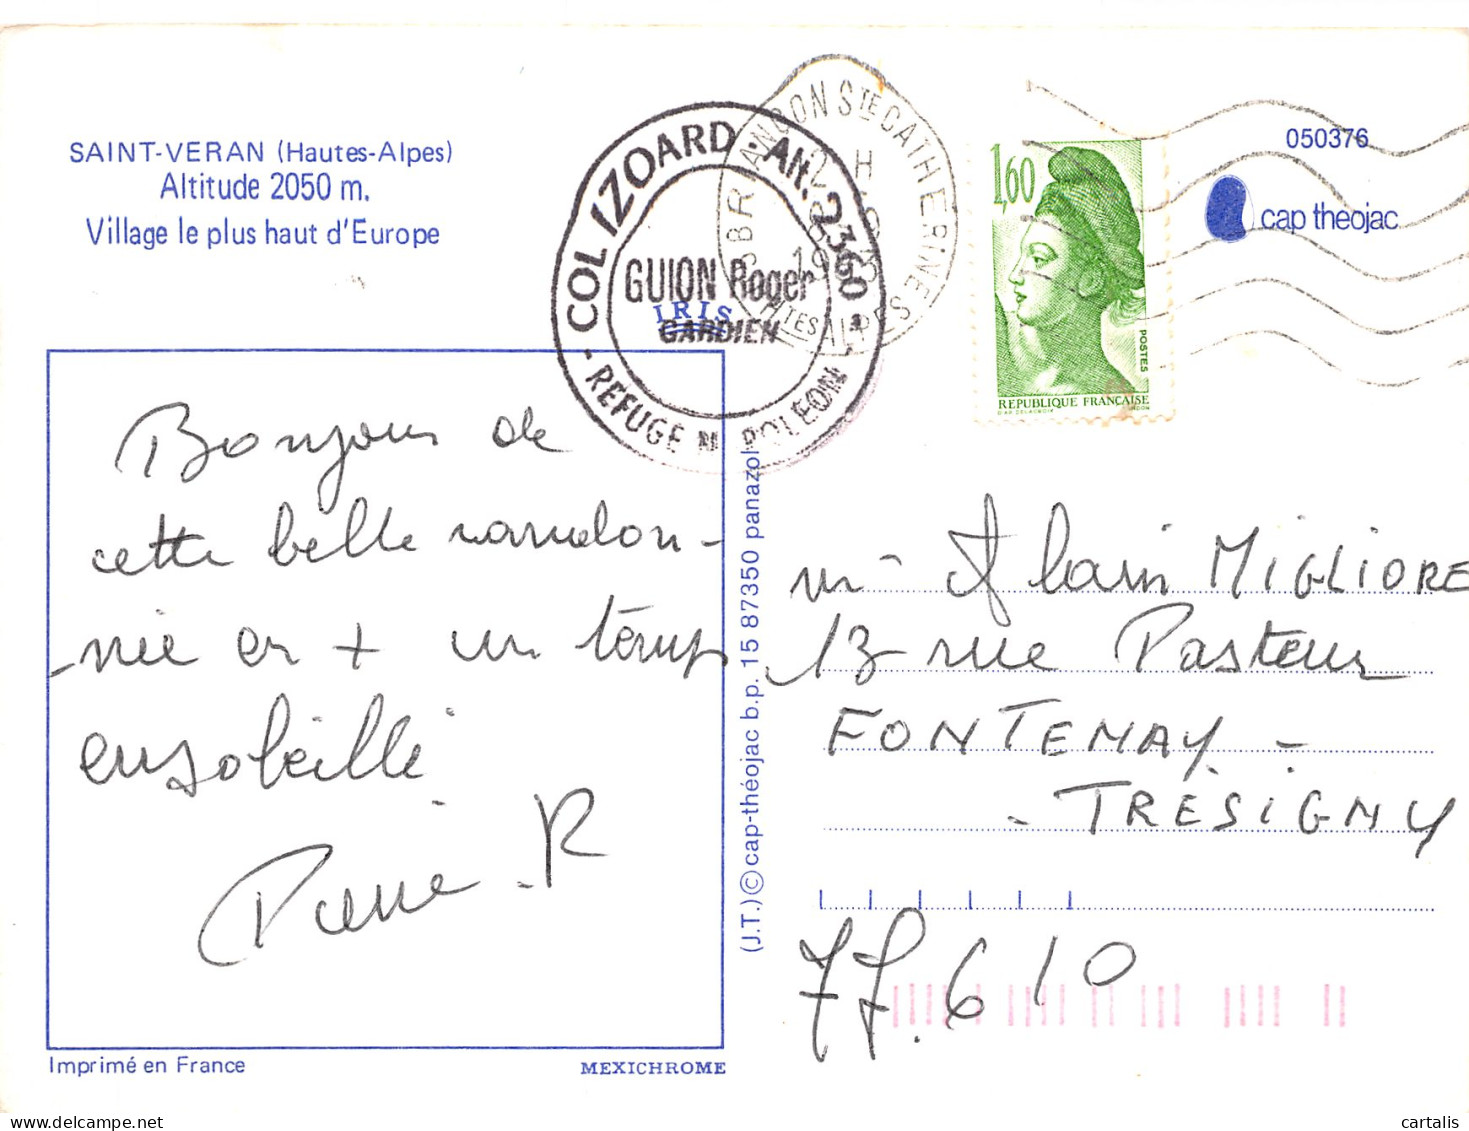 SAINT-VERAN (Hautes-Alpes)
Altitude 2050 m.
Village le plus haut d'Europe
COL IZOARD - Alt. 2360
GUION Roger
IRIS
GARDIEN
- REFUGE N POLEON
BRIANCON STE CATHERINE
HTES ALPES
1,60
POSTES
REPUBLIQUE FRANÇAISE
D'AP. DELACROIX
GANDON
050376
cap theojac
Bonjour de
cette belle randon-
née en + un temps
ensoleillé
Pierre. R
(J.T.) © cap-théojac b.p. 15 87350 panazol
Mr Alain MIGLIORE
13 rue Pasteur
FONTENAY -
- TRESIGNY
77.610
Imprimé en France
MEXICHROME
cartalis